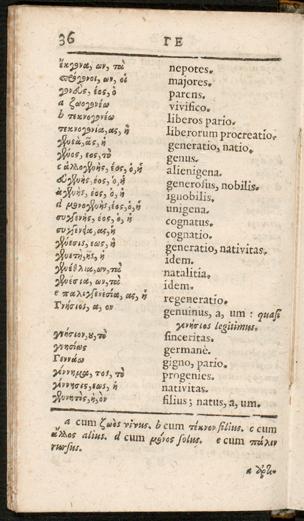 36 ΓΕ
ἔκγονα, ων, τὰ nepotes.
πρόγονοι, ων, οἱ majores.
γονεὺς, έος, ὁ parens.
a ζωογονέω vivifico.
b τεκνογονέω liberos pario.
τεκνογονία, ας, ἡ liberorum procreatio.
γενεὰ, ᾶς, ἡ generatio, natio.
γένος, εος, τὸ genus.
c ἀλλογενὴς, έος, ὁ, ἡ alienigena.
εὐγενὴς, έος, ὁ, ἡ generosus, nobilis.
ἀγενὴς, έος, ὁ, ἡ ignobilis.
d μονογενὴς, έος, ὁ, ἡ unigena.
συγγενὴς, έος, ὁ, ἡ cognatus.
συγγένεια, ας, ἡ cognatio.
γένεσις, εως, ἡ generatio, nativitas.
γενετὴ, ῆς, ἡ idem.
γενέθλια, ων, τὰ natalitia.
γενέσια, ων, τὰ idem.
e παλιγγενεσία, ας, ἡ regeneratio.
Γνήσιος, α, ον genuinus, a, um: quasi
γενήσιος legitimus.
γνήσιον, ου, τὸ sinceritas.
γνησίως germanè.
Γεννάω gigno, pario.
γέννημα, τος, τὸ progenies.
γέννησις, εως, ἡ nativitas.
γεννητὸς, ὴ, ὸν filius; natus, a, um.
a cum ζωὸς vivus. b cum τέκνον filius. c cum
ἄλλος alius. d cum μόνος solus. e cum πάλιν
rursus.